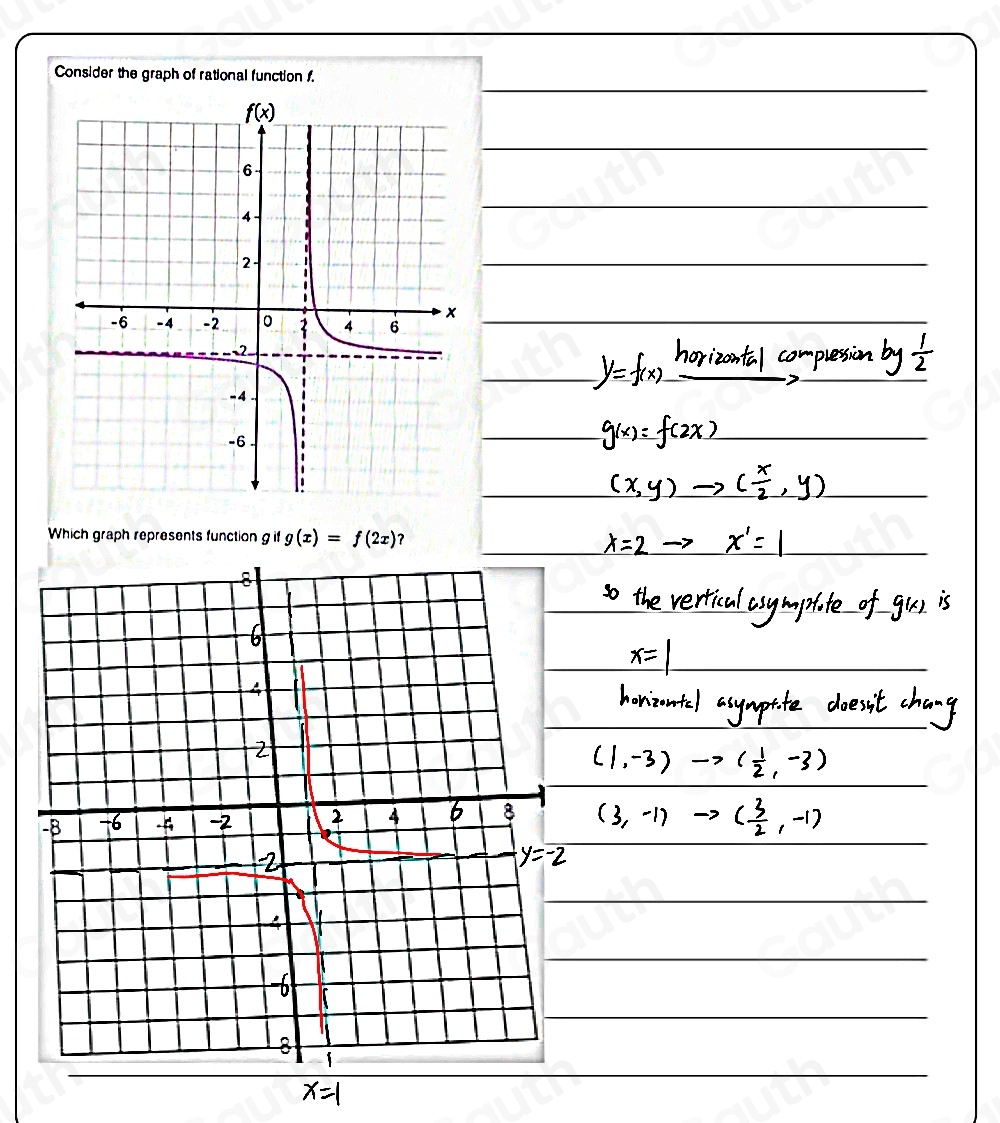 Consider the graph of rational function f.
f(x)
6
4
2
-6 -4 -2 0 2 4 6 x
-2
-4
-6
Which graph represents function g if g(x) = f(2x)?
8
6
4
2
-8 -6 -4 -2 2 4 6 8
-2
y=-2
-4
-6
8
x=1
y=f(x) horizontal compression by 1/2
g(x)=f(2x)
(x,y) → (x/2, y)
x=2 → x'=1
so the vertical asymptote of g(x) is
x=1
horizontal asymptote doesn't chang
(1,-3) → (1/2, -3)
(3,-1) → (3/2, -1)
Gauth